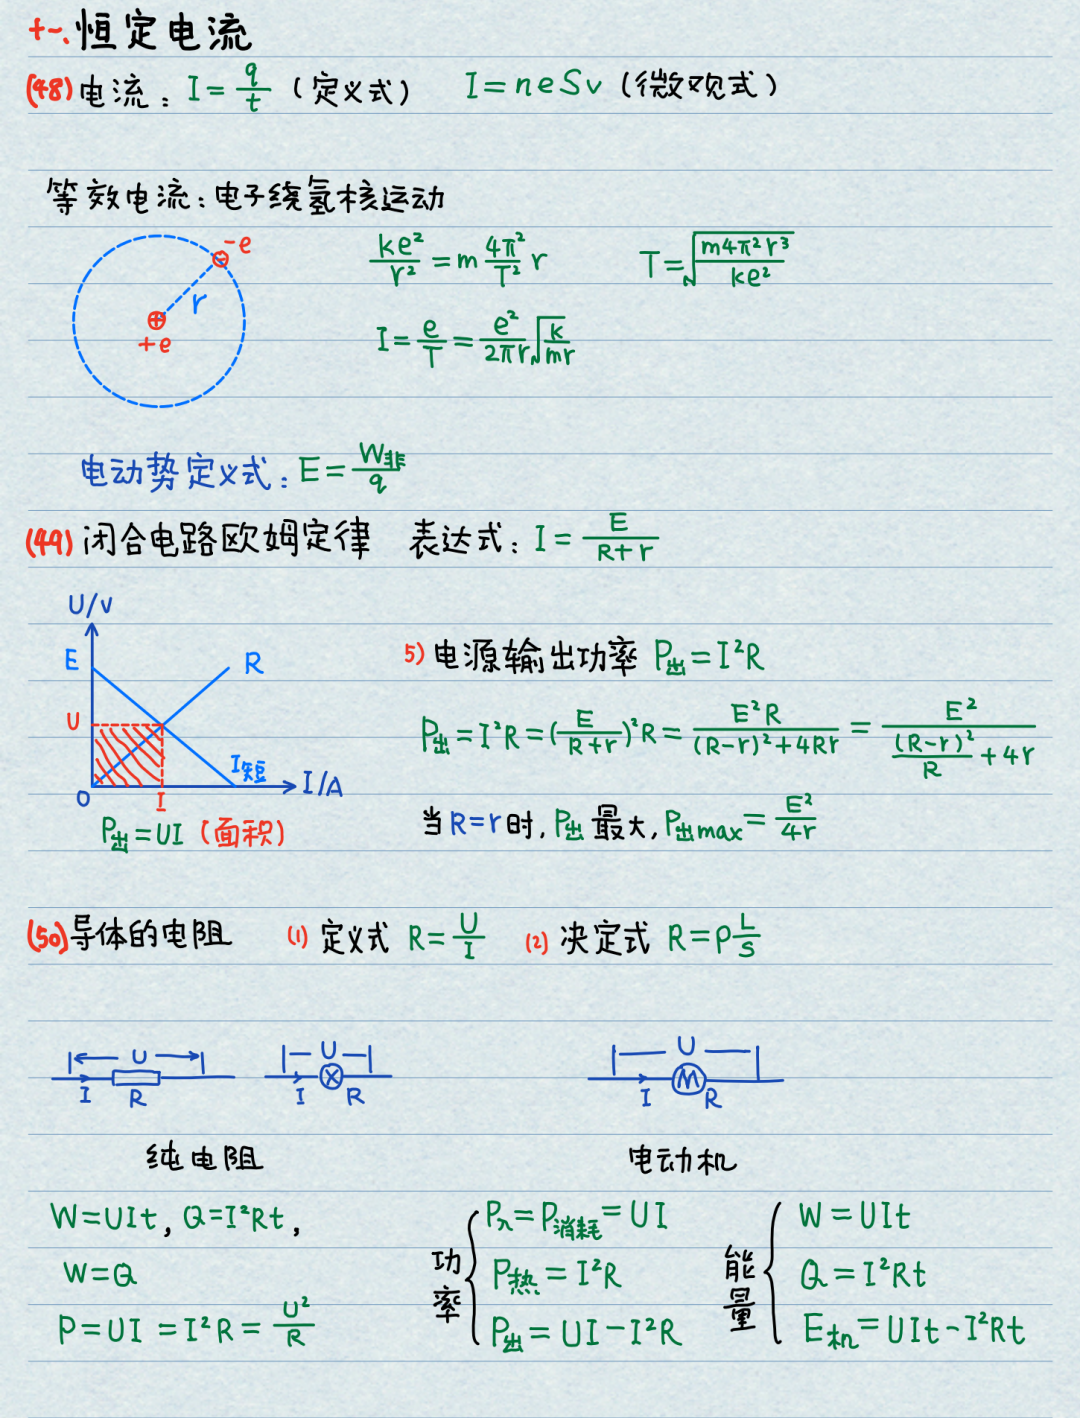 十一.恒定电流
(48)电流：I=q/t（定义式） I=neSv（微观式）
等效电流：电子绕氢核运动
-e
r
+e
ke²/r²=m4π²/T² r T=√(m4π²r³/ke²)
I=e/T=e²/2πr√(k/mr)
电动势定义式：E=W非/q
(49)闭合电路欧姆定律 表达式：I=E/(R+r)
U/V
E R
U
I短
O I I/A
P出=UI（面积）
5)电源输出功率 P出=I²R
P出=I²R=(E/(R+r))²R=E²R/((R-r)²+4Rr)=E²/((R-r)²/R+4r)
当R=r时，P出最大，P出max=E²/4r
(50)导体的电阻 (1)定义式 R=U/I (2)决定式 R=ρL/S
U U U
I R I R M I R
纯电阻 电动机
W=UIt，Q=I²Rt，
W=Q
P=UI=I²R=U²/R
功率
P入=P消耗=UI
P热=I²R
P出=UI-I²R
能量
W=UIt
Q=I²Rt
E机=UIt-I²Rt